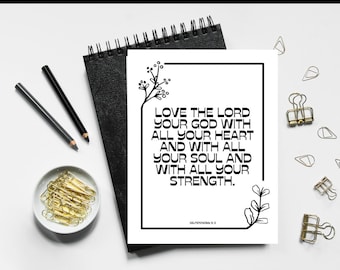 LOVE THE LORD
YOUR GOD WITH
ALL YOUR HEART
AND WITH ALL
YOUR SOUL AND
WITH ALL YOUR
STRENGTH.